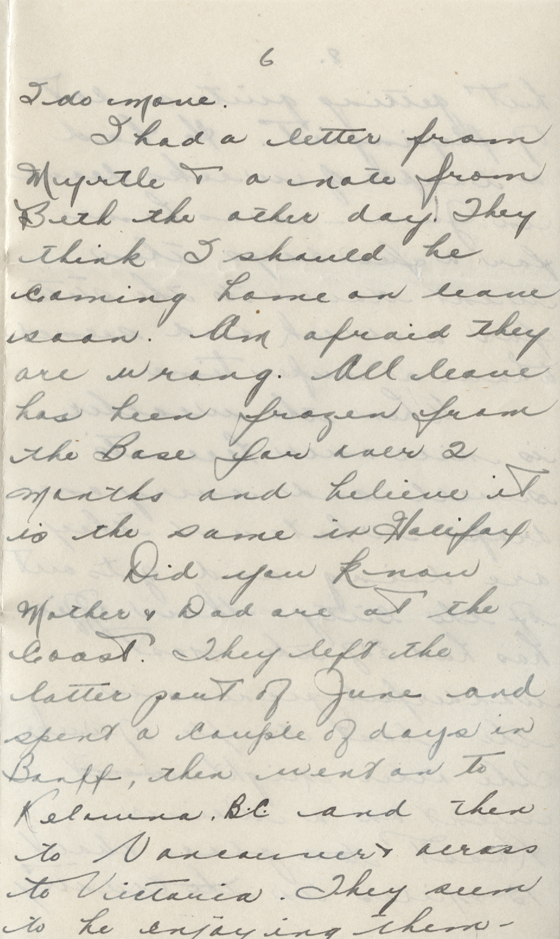 6
I do move.
I had a letter from
Myrtle & a note from
Beth the other day. They
think I should be
coming home on leave
soon. Am afraid they
are wrong. All leave
has been frozen from
the Base for over 2
months and believe it
is the same in Halifax
Did you know
Mother & Dad are at the
Coast. They left the
latter part of June and
spent a couple of days in
Banff, then went on to
Kelowna. B.C. and then
to Vancouver & across
to Victoria. They seem
to be enjoying them-